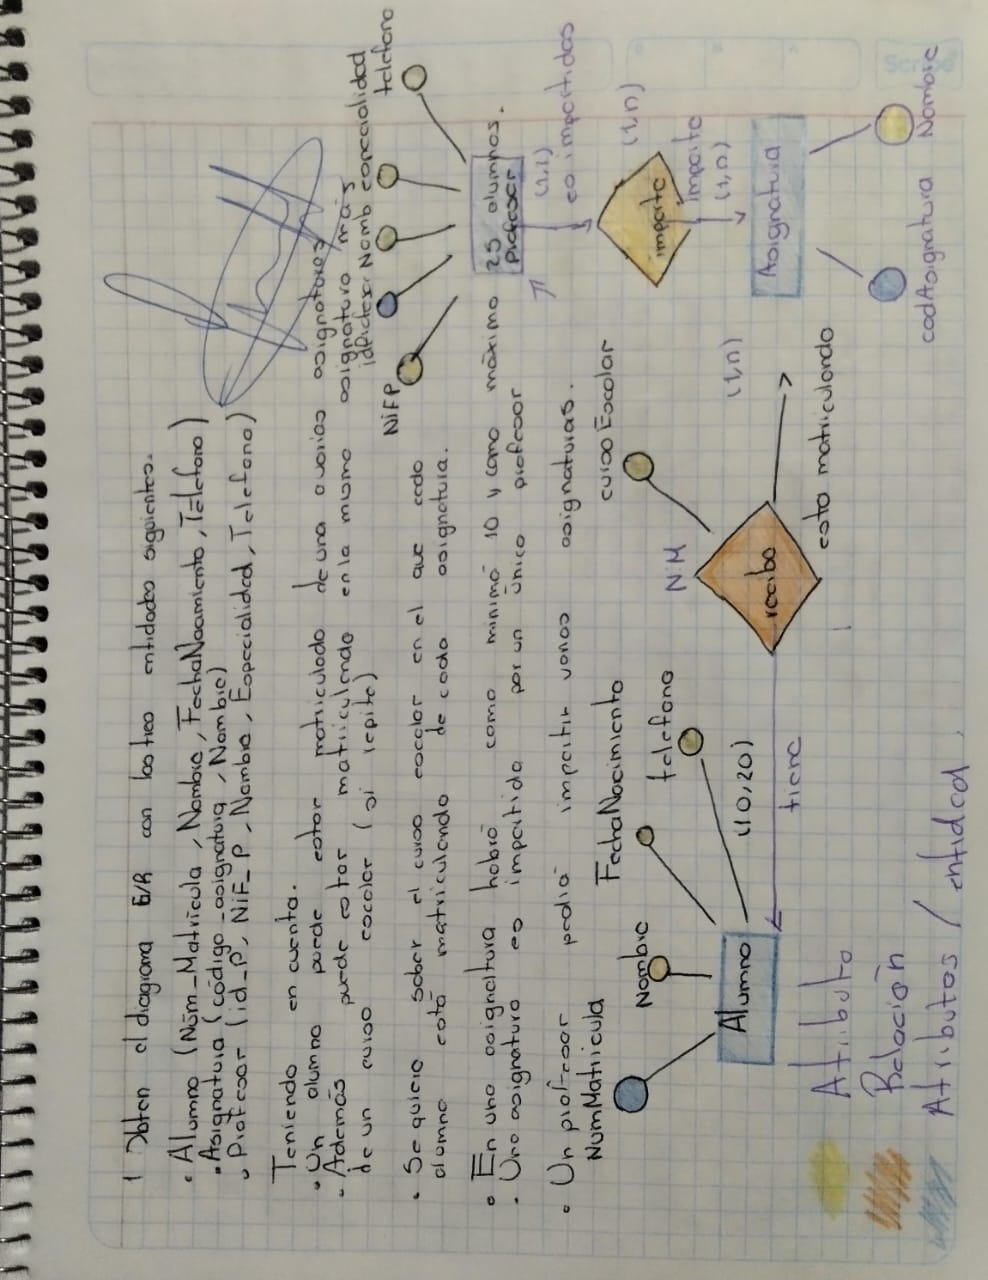 1 Obten el diagrama E/R con las tres entidades siguientes.
• Alumno (Núm_Matrícula, Nombre, FechaNacimiento, Teléfono)
• Asignatura (código_asignatura, Nombre)
• Profesor (id_P, NiF_P, Nombre, Especialidad, Telefono)
Teniendo en cuenta.
• Un alumno puede estar matriculado de una o varias asignaturas
• Además puede estar matriculando en la misma asignatura más
de un curso escolar (si repite)
• Se quiere saber el curso escolar en el que cada
alumno está matriculando de cada asignatura.
• En una asignatura habrá como mínimo 10 y como máximo 25 alumnos.
• Una asignatura es impartida por un único profesor
• Un profesor podrá impartir varias asignaturas.
NiFP
Nomb
especialidad
telefono
Profesor
(1,1)
es impartidas
imparte
(1,n)
imparte
(1,n)
Asignatura
codAsignatura
Nombre
NumMatricula
Nombre
FechaNacimiento
telefono
Alumno
(10,20)
tiene
recibe
N:M
cursoEscolar
(1,n)
esta matriculando
Atributo
Relación
Atributos / entidad
Scribe